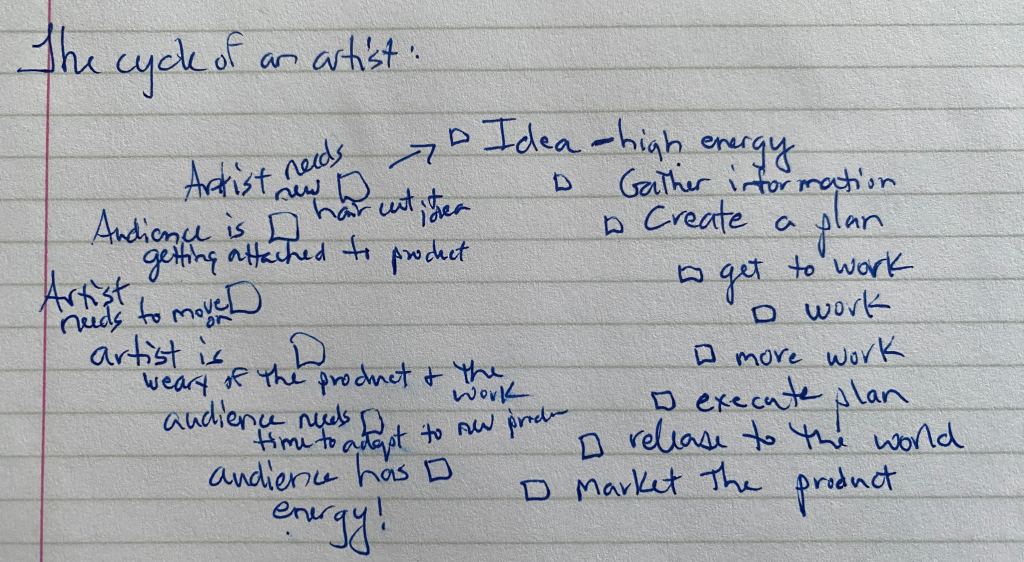 The cycle of an artist:
Idea - high energy
Gather information
Create a plan
get to work
work
more work
execute plan
release to the world
market the product
audience has
energy!
audience needs
time to adapt to new
artist is
weary of the product & the
work
Artist
needs to move
on
Audience is
getting attached to product
Artist needs
new
haircut, idea